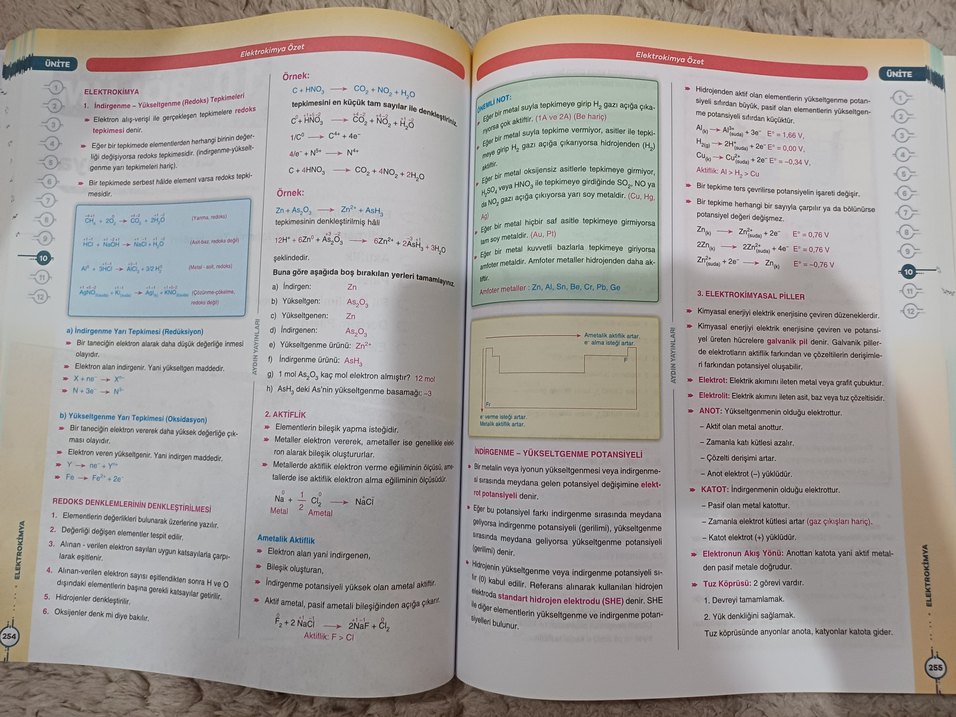 Elektrokimya Özet
ÜNİTE
1
2
3
4
5
6
7
8
9
10
11
12
ELEKTROKİMYA
1. İndirgenme – Yükseltgenme (Redoks) Tepkimeleri
» Elektron alış-verişi ile gerçekleşen tepkimelere redoks
tepkimesi denir.
» Eğer bir tepkimede elementlerden herhangi birinin değer-
liği değişiyorsa redoks tepkimesidir. (indirgenme-yükselt-
genme yarı tepkimeleri hariç).
» Bir tepkimede serbest hâlde element varsa redoks tepki-
mesidir.
CH₄ + 2O₂ → CO₂ + 2H₂O (Yanma, redoks)
HCl + NaOH → NaCl + H₂O (Asit-baz, redoks değil)
Al⁰ + 3HCl → AlCl₃ + 3/2 H₂ (Metal - asit, redoks)
AgNO₃(suda) + KI(suda) → AgI(k) + KNO₃(suda) (Çözünme-çökelme,
redoks değil)
a) İndirgenme Yarı Tepkimesi (Redüksiyon)
» Bir taneciğin elektron alarak daha düşük değerliğe inmesi
olayıdır.
» Elektron alan indirgenir. Yani yükseltgen maddedir.
» X + ne⁻ → Xⁿ⁻
» N + 3e⁻ → N³⁻
b) Yükseltgenme Yarı Tepkimesi (Oksidasyon)
» Bir taneciğin elektron vererek daha yüksek değerliğe çık-
ması olayıdır.
» Elektron veren yükseltgenir. Yani indirgen maddedir.
» Y → ne⁻ + Yⁿ⁺
» Fe → Fe²⁺ + 2e⁻
REDOKS DENKLEMLERİNİN DENKLEŞTİRİLMESİ
1. Elementlerin değerlikleri bulunarak üzerlerine yazılır.
2. Değerliği değişen elementler tespit edilir.
3. Alınan - verilen elektron sayıları uygun katsayılarla çarpı-
larak eşitlenir.
4. Alınan-verilen elektron sayısı eşitlendikten sonra H ve O
dışındaki elementlerin başına gerekli katsayılar getirilir.
5. Hidrojenler denkleştirilir.
6. Oksijenler denk mi diye bakılır.
ELEKTROKİMYA
254
AYDIN YAYINLARI
Örnek:
C + HNO₃ → CO₂ + NO₂ + H₂O
tepkimesini en küçük tam sayılar ile denkleştiriniz.
C + HNO₃ → CO₂ + NO₂ + H₂O
1/C⁰ → C⁴⁺ + 4e⁻
4/e⁻ + N⁵⁺ → N⁴⁺
C + 4HNO₃ → CO₂ + 4NO₂ + 2H₂O
Örnek:
Zn + As₂O₃ → Zn²⁺ + AsH₃
tepkimesinin denkleştirilmiş hâli
12H⁺ + 6Zn⁰ + As₂O₃ → 6Zn²⁺ + 2AsH₃ + 3H₂O
şeklindedir.
Buna göre aşağıda boş bırakılan yerleri tamamlayınız.
a) İndirgen: Zn
b) Yükseltgen: As₂O₃
c) Yükseltgenen: Zn
d) İndirgenen: As₂O₃
e) Yükseltgenme ürünü: Zn²⁺
f) İndirgenme ürünü: AsH₃
g) 1 mol As₂O₃ kaç mol elektron almıştır? 12 mol
h) AsH₃ deki As'nin yükseltgenme basamağı: –3
2. AKTİFLİK
» Elementlerin bileşik yapma isteğidir.
» Metaller elektron vererek, ametaller ise genellikle elekt-
ron alarak bileşik oluştururlar.
» Metallerde aktiflik elektron verme eğiliminin ölçüsü, ame-
tallerde ise aktiflik elektron alma eğiliminin ölçüsüdür.
Na + 1/2 Cl₂ → NaCl
Metal Ametal
Ametalik Aktiflik
» Elektron alan yani indirgenen,
» Bileşik oluşturan,
» İndirgenme potansiyeli yüksek olan ametal aktiftir.
» Aktif ametal, pasif ametali bileşiğinden açığa çıkarır.
F₂ + 2 NaCl → 2NaF + Cl₂
Aktiflik: F > Cl
Elektrokimya Özet
ÜNİTE
1
2
3
4
5
6
7
8
9
10
11
12
ÖNEMLİ NOT:
» Eğer bir metal suyla tepkimeye girip H₂ gazı açığa çıka-
rıyorsa çok aktiftir. (1A ve 2A) (Be hariç)
» Eğer bir metal suyla tepkime vermiyor, asitler ile tepki-
meye girip H₂ gazı açığa çıkarıyorsa hidrojenden (H₂)
aktiftir.
» Eğer bir metal oksijensiz asitlerle tepkimeye girmiyor,
H₂SO₄ veya HNO₃ ile tepkimeye girdiğinde SO₂, NO ya
da NO₂ gazı açığa çıkıyorsa yarı soy metaldir. (Cu, Hg,
Ag)
» Eğer bir metal hiçbir saf asitle tepkimeye girmiyorsa
tam soy metaldir. (Au, Pt)
» Eğer bir metal kuvvetli bazlarla tepkimeye giriyorsa
amfoter metaldir. Amfoter metaller hidrojenden daha ak-
tiftir.
Amfoter metaller : Zn, Al, Sn, Be, Cr, Pb, Ge
Ametalik aktiflik artar.
e⁻ alma isteği artar.
F
Fr
e⁻ verme isteği artar.
Metalik aktiflik artar.
İNDİRGENME – YÜKSELTGENME POTANSİYELİ
» Bir metalin veya iyonun yükseltgenmesi veya indirgenme-
si sırasında meydana gelen potansiyel değişimine elekt-
rot potansiyeli denir.
» Eğer bu potansiyel farkı indirgenme sırasında meydana
geliyorsa indirgenme potansiyeli (gerilimi), yükseltgenme
sırasında meydana geliyorsa yükseltgenme potansiyeli
(gerilimi) denir.
» Hidrojenin yükseltgenme veya indirgenme potansiyeli sı-
fır (0) kabul edilir. Referans alınarak kullanılan hidrojen
elektroda standart hidrojen elektrodu (SHE) denir. SHE
ile diğer elementlerin yükseltgenme ve indirgenme potan-
siyelleri bulunur.
AYDIN YAYINLARI
» Hidrojenden aktif olan elementlerin yükseltgenme potan-
siyeli sıfırdan büyük, pasif olan elementlerin yükseltgen-
me potansiyeli sıfırdan küçüktür.
Al(k) → Al³⁺(suda) + 3e⁻ E° = 1,66 V,
H₂(g) → 2H⁺(suda) + 2e⁻ E° = 0,00 V,
Cu(k) → Cu²⁺(suda) + 2e⁻ E° = –0,34 V,
Aktiflik: Al > H₂ > Cu
» Bir tepkime ters çevrilirse potansiyelin işareti değişir.
» Bir tepkime herhangi bir sayıyla çarpılır ya da bölünürse
potansiyel değeri değişmez.
Zn(k) → Zn²⁺(suda) + 2e⁻ E° = 0,76 V
2Zn(k) → 2Zn²⁺(suda) + 4e⁻ E° = 0,76 V
Zn²⁺(suda) + 2e⁻ → Zn(k) E° = –0,76 V
3. ELEKTROKİMYASAL PİLLER
» Kimyasal enerjiyi elektrik enerjisine çeviren düzeneklerdir.
» Kimyasal enerjiyi elektrik enerjisine çeviren ve potansi-
yel üreten hücrelere galvanik pil denir. Galvanik piller-
de elektrotların aktiflik farkından ve çözeltilerin derişimle-
ri farkından potansiyel oluşabilir.
» Elektrot: Elektrik akımını ileten metal veya grafit çubuktur.
» Elektrolit: Elektrik akımını ileten asit, baz veya tuz çözeltisidir.
» ANOT: Yükseltgenmenin olduğu elektrottur.
– Aktif olan metal anottur.
– Zamanla katı kütlesi azalır.
– Çözelti derişimi artar.
– Anot elektrot (–) yüklüdür.
» KATOT: İndirgenmenin olduğu elektrottur.
– Pasif olan metal katottur.
– Zamanla elektrot kütlesi artar (gaz çıkışları hariç).
– Katot elektrot (+) yüklüdür.
» Elektronun Akış Yönü: Anottan katota yani aktif metal-
den pasif metale doğrudur.
» Tuz Köprüsü: 2 görevi vardır.
1. Devreyi tamamlamak.
2. Yük denkliğini sağlamak.
Tuz köprüsünde anyonlar anota, katyonlar katota gider.
ELEKTROKİMYA
255